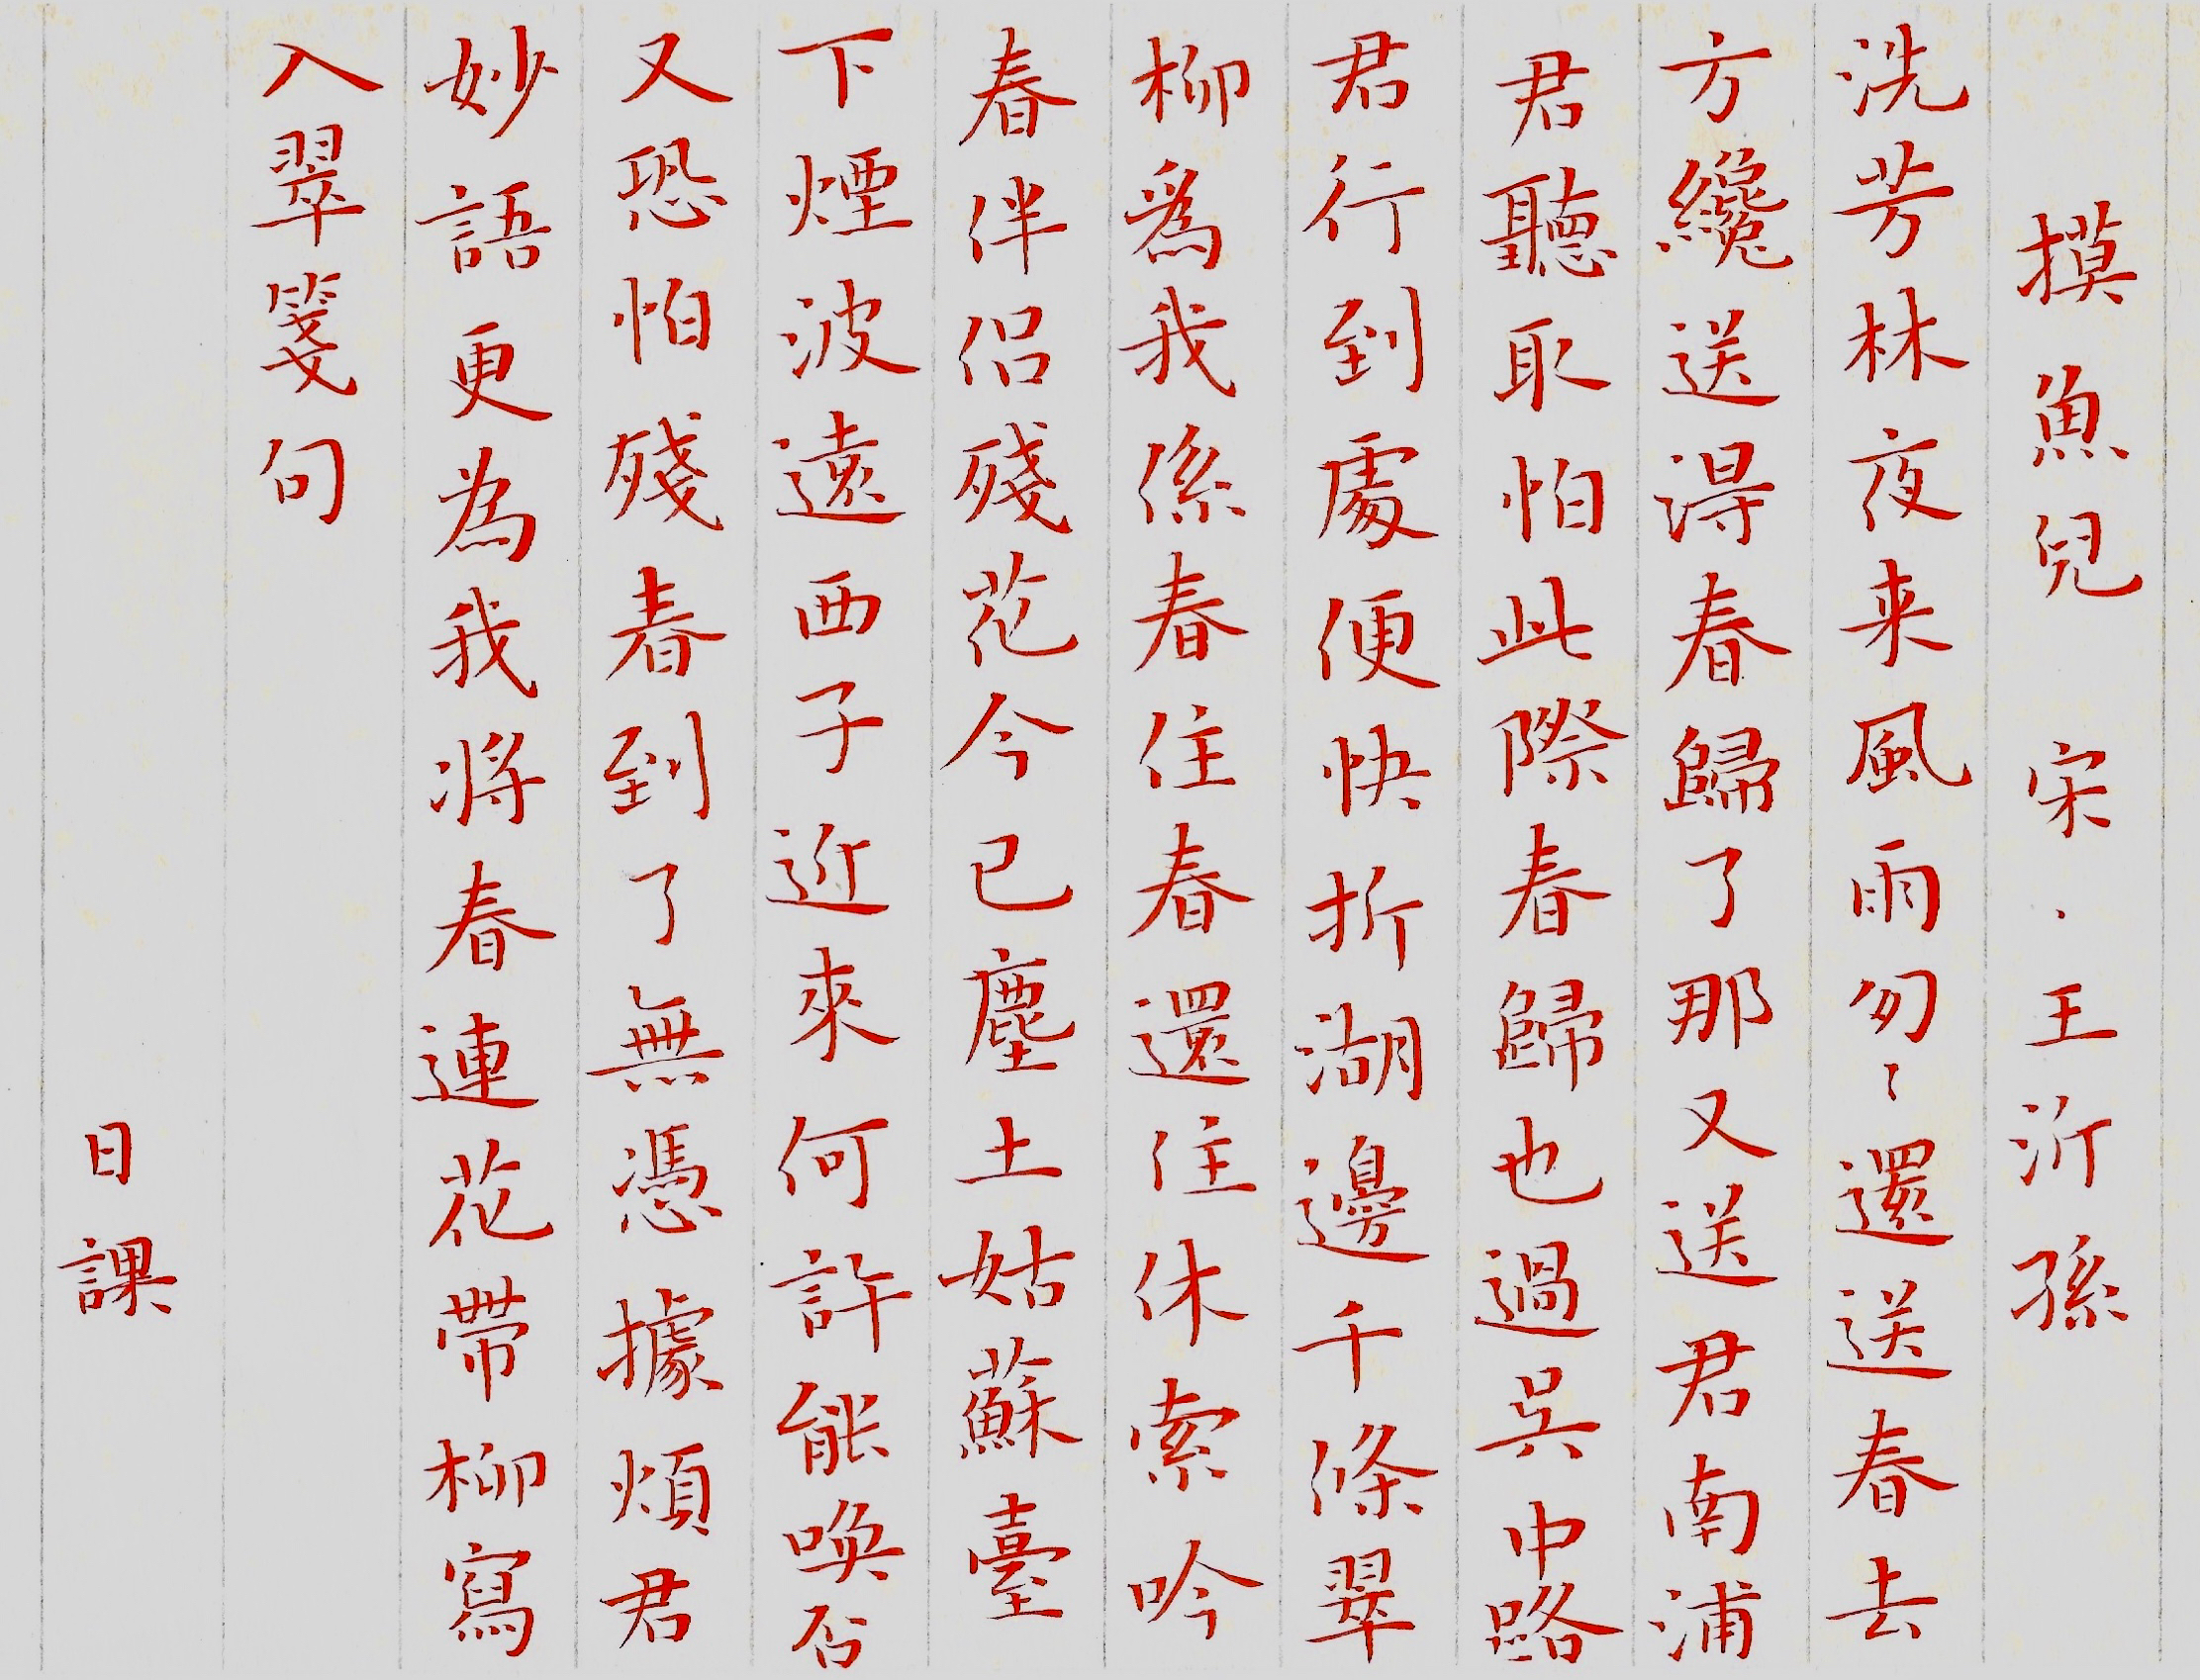 摸魚兒　宋．王沂孫
洗芳林夜来風雨匆〻還送春去
方纔送得春歸了那又送君南浦
君聽取怕此際春歸也過吳中路
君行到處便快折湖邊千條翠
柳爲我係春住春還住休索吟
春伴侶殘花今已塵土姑蘇臺
下煙波遠西子近來何許能喚否
又恐怕殘春到了無憑據煩君
妙語更為我将春連花帶柳寫
入翠箋句
日課